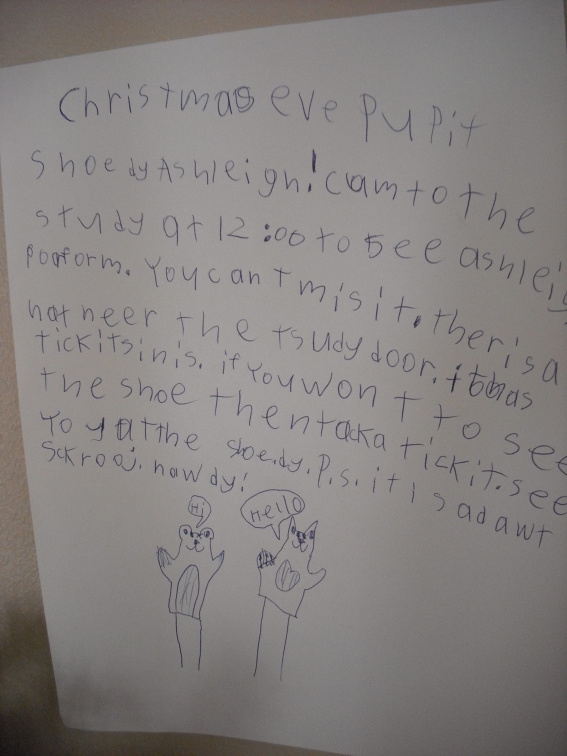 Christmas eve PuPit
Shoe dy Ashleigh! cam to the
study at 12:00 to see ashleig
poaform. You can t mis it. ther is a
hat neer the tsudy door. it has
tickits in is. if You won t to see
the shoe then tacka tickit. see
Yo y at the shoe. dy. P.s. it is adawt
Sckrooj. how dy!
Hi
Hello